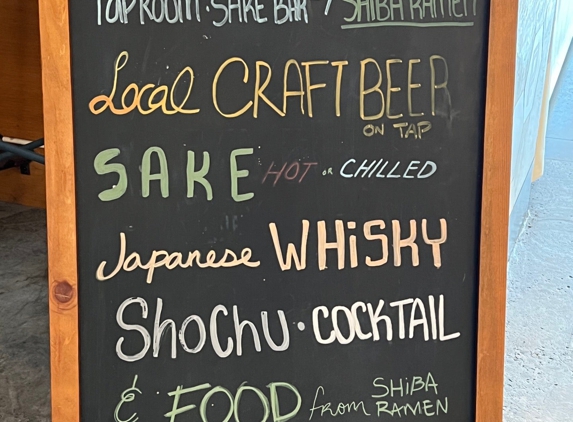 TapRoom · SAKE BAR / SHIBA RAMEN
Local CRAFT BEER
ON TAP
SAKE HOT or CHILLED
Japanese WHiSKY
ShoChu · COCKTAIL
& FOOD from SHiBA
RAMEN